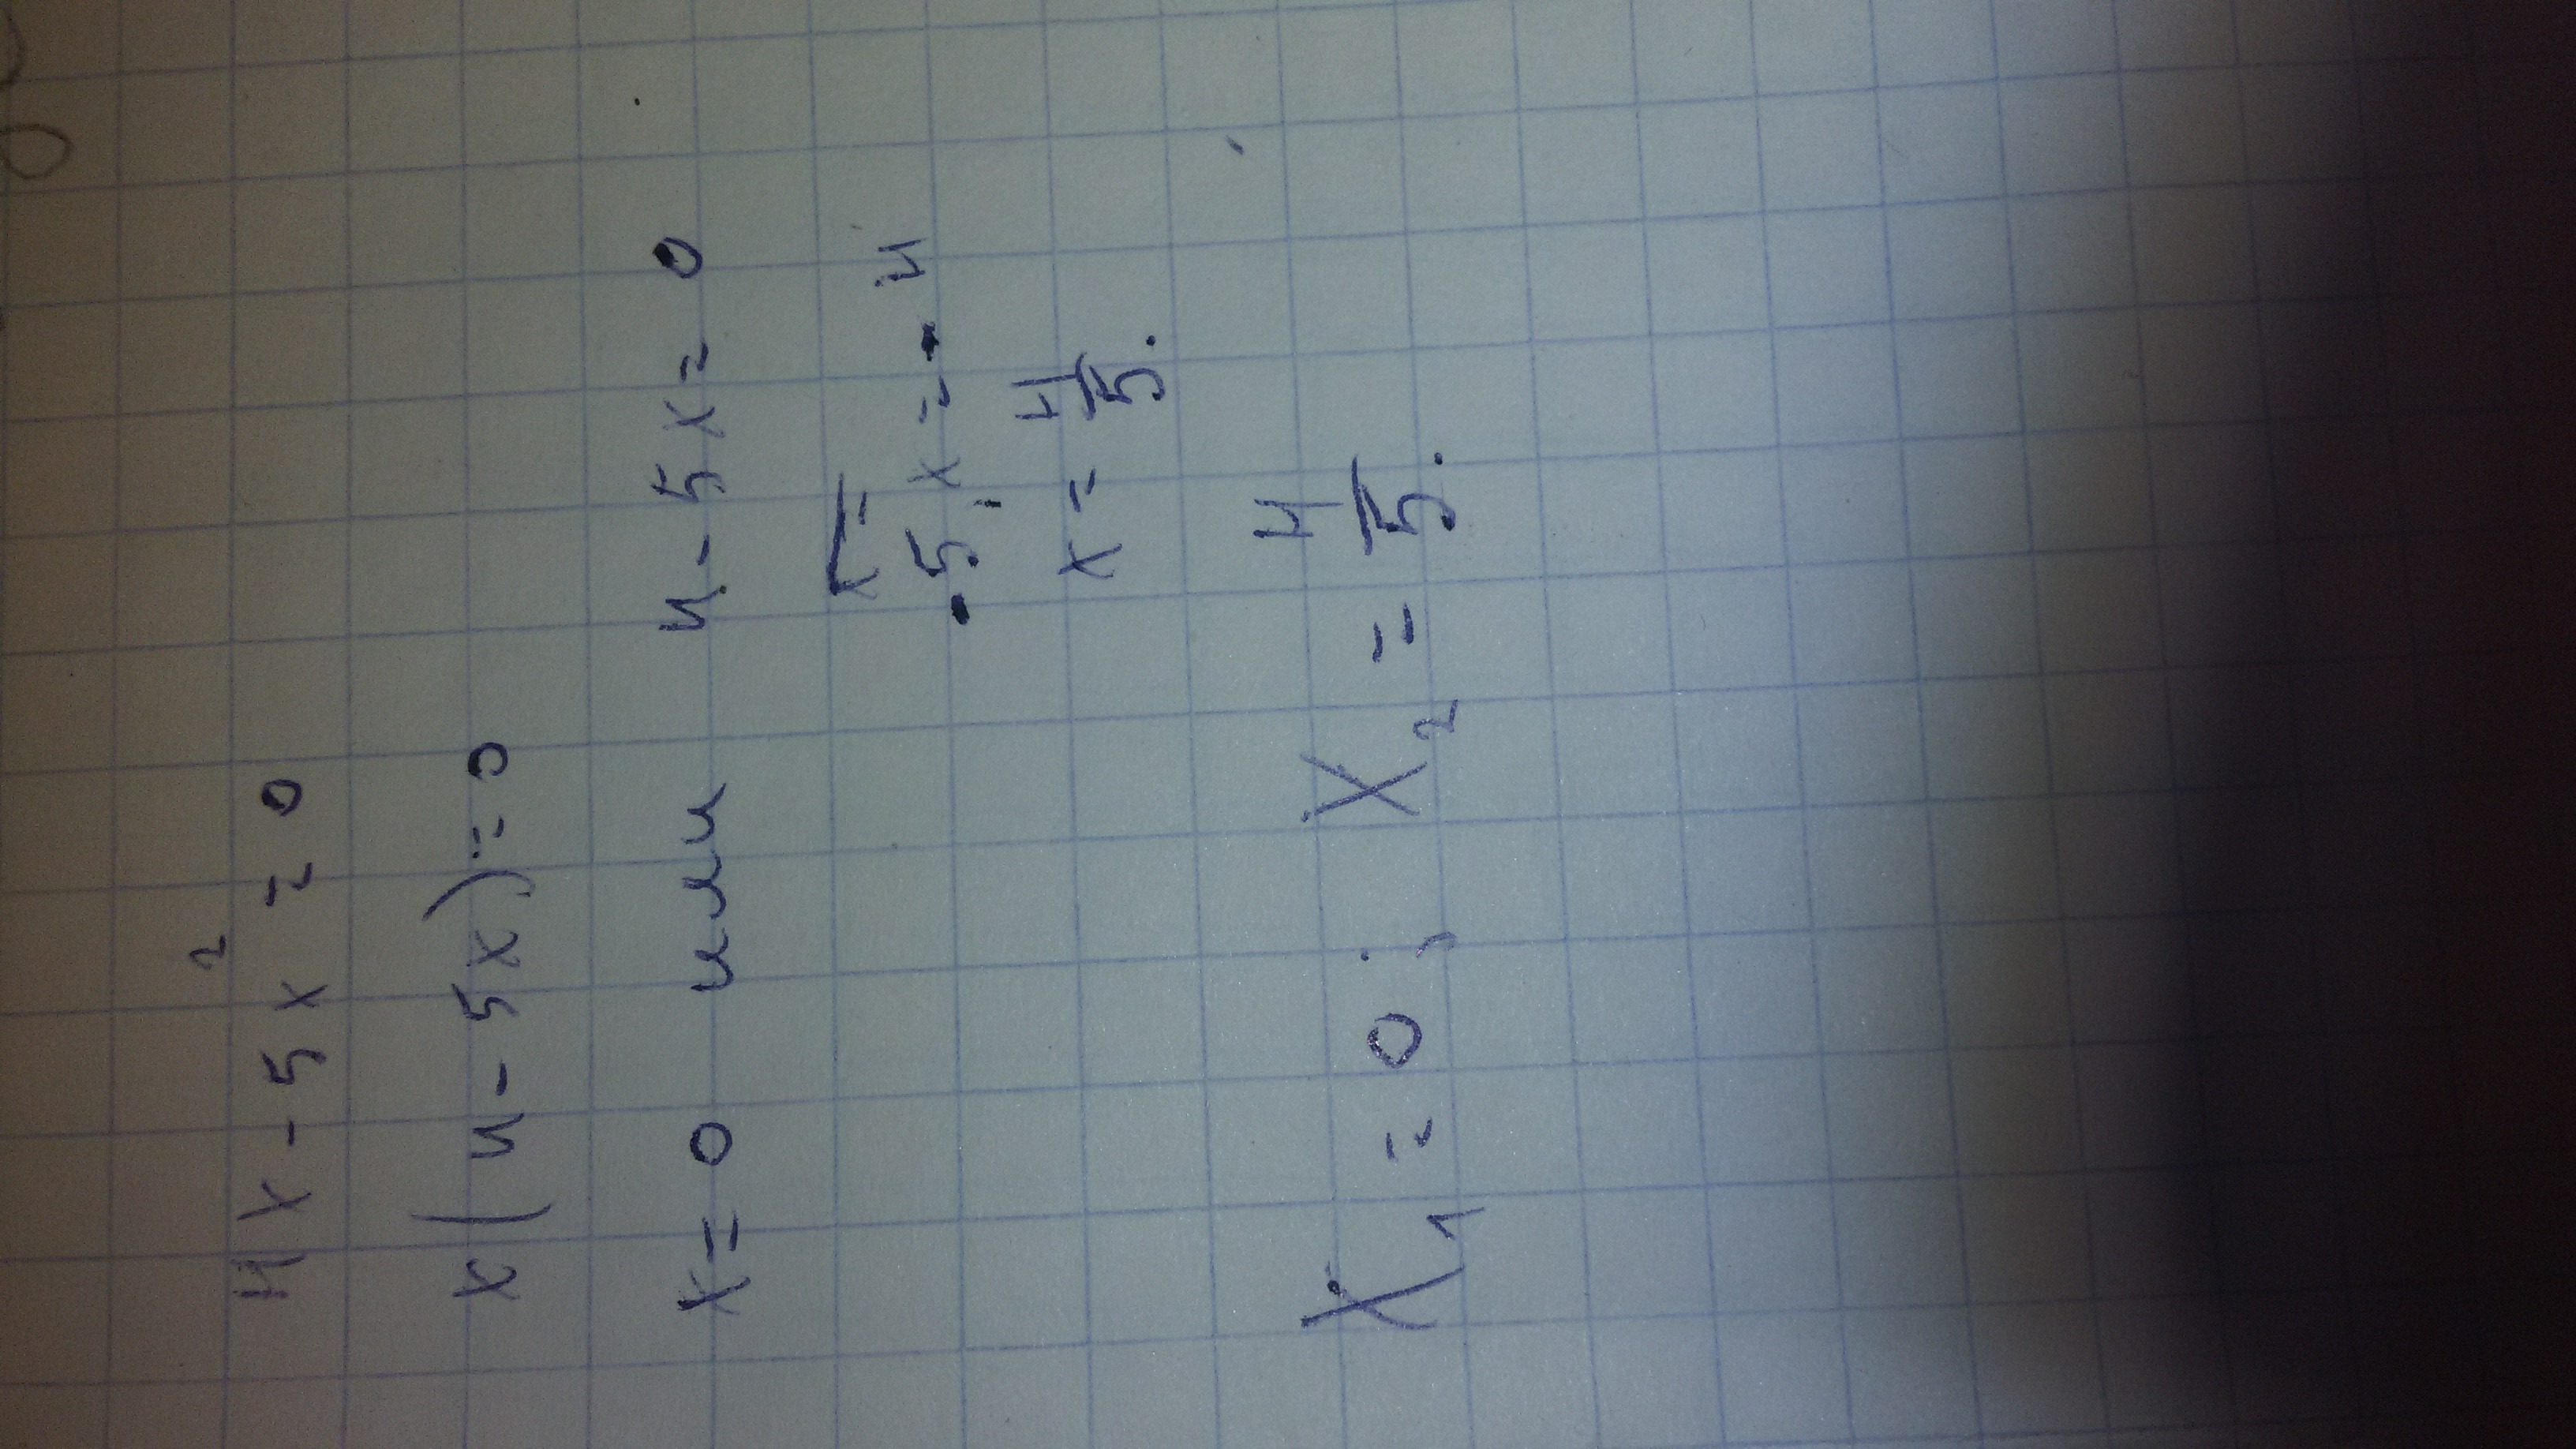 4x - 5x² = 0
x(4 - 5x) = 0
x = 0 или 4 - 5x = 0
5x = 4
x = 4/5.
X₁ = 0; X₂ = 4/5.